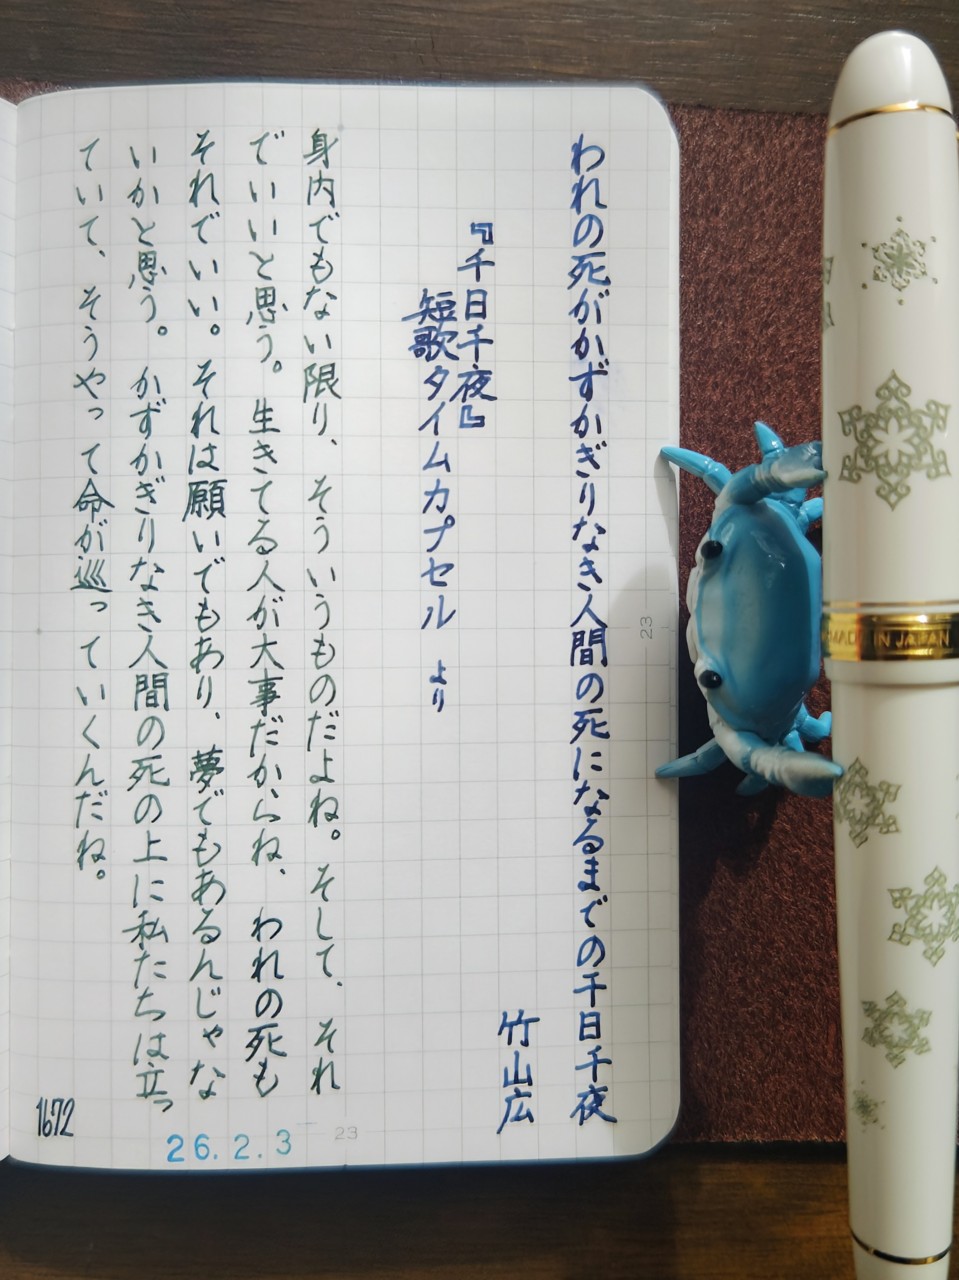 われの死がかずかぎりなき人間の死になるまでの千日千夜
竹山広
『千日千夜』
短歌タイムカプセル より
身内でもない限り、そういうものだよね。そして、それ
でいいと思う。生きてる人が大事だからね、われの死も
それでいい。それは願いでもあり、夢でもあるんじゃな
いかと思う。かずかぎりなき人間の死の上に私たちは立っ
ていて、そうやって命が巡っていくんだね。
1672
26.2.3
23
23
MADE IN JAPAN